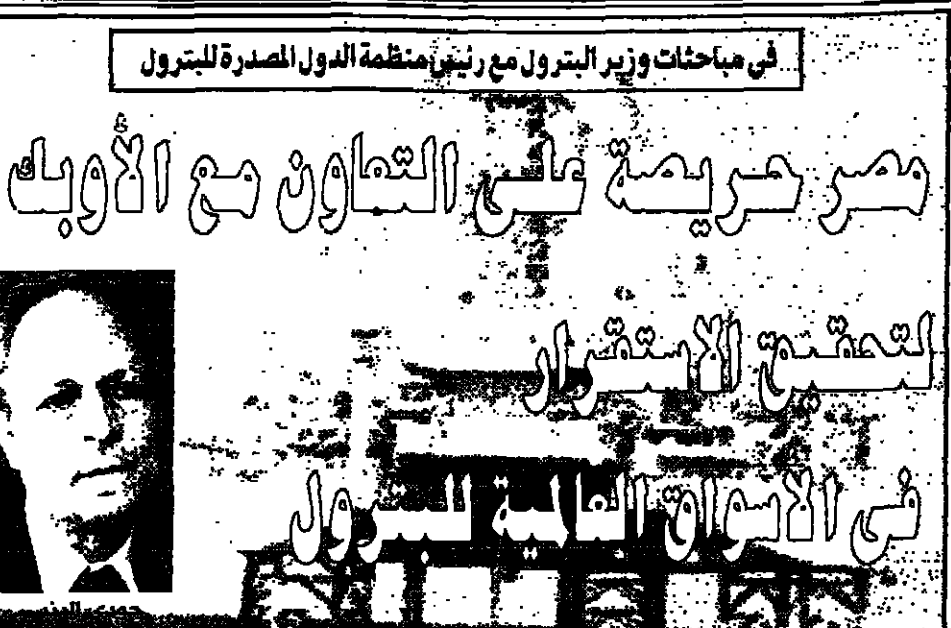 في مباحثات وزير البترول مع رئيس منظمة الدول المصدرة للبترول
مصر حريصة على التعاون مع الأوبك
لتحقيق الاستقرار
فى الاسواق العالمية للبترول